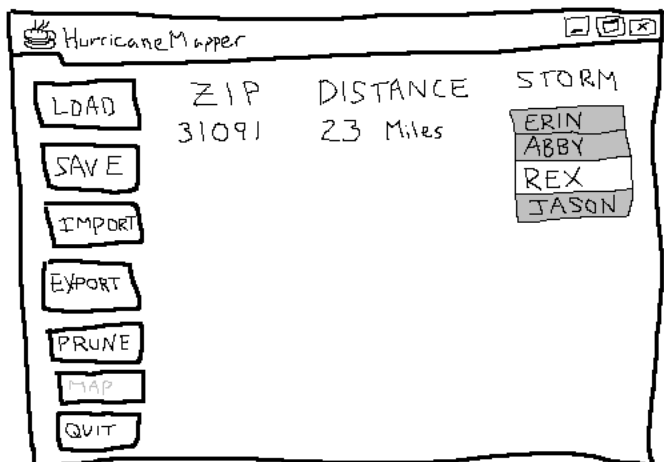 HurricaneMapper
LOAD
SAVE
IMPORT
EXPORT
PRUNE
MAP
QUIT
ZIP DISTANCE STORM
31091 23 Miles
ERIN
ABBY
REX
JASON